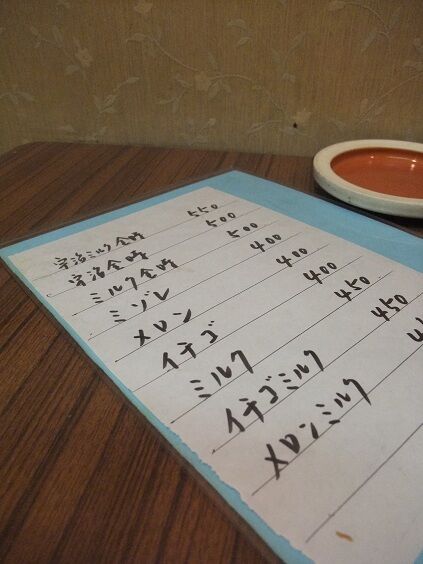 宇治ミルク金時 550
宇治金時 500
ミルク金時 500
ミゾレ 400
メロン 400
イチゴ 400
ミルク 450
イチゴミルク 450
メロンミルク